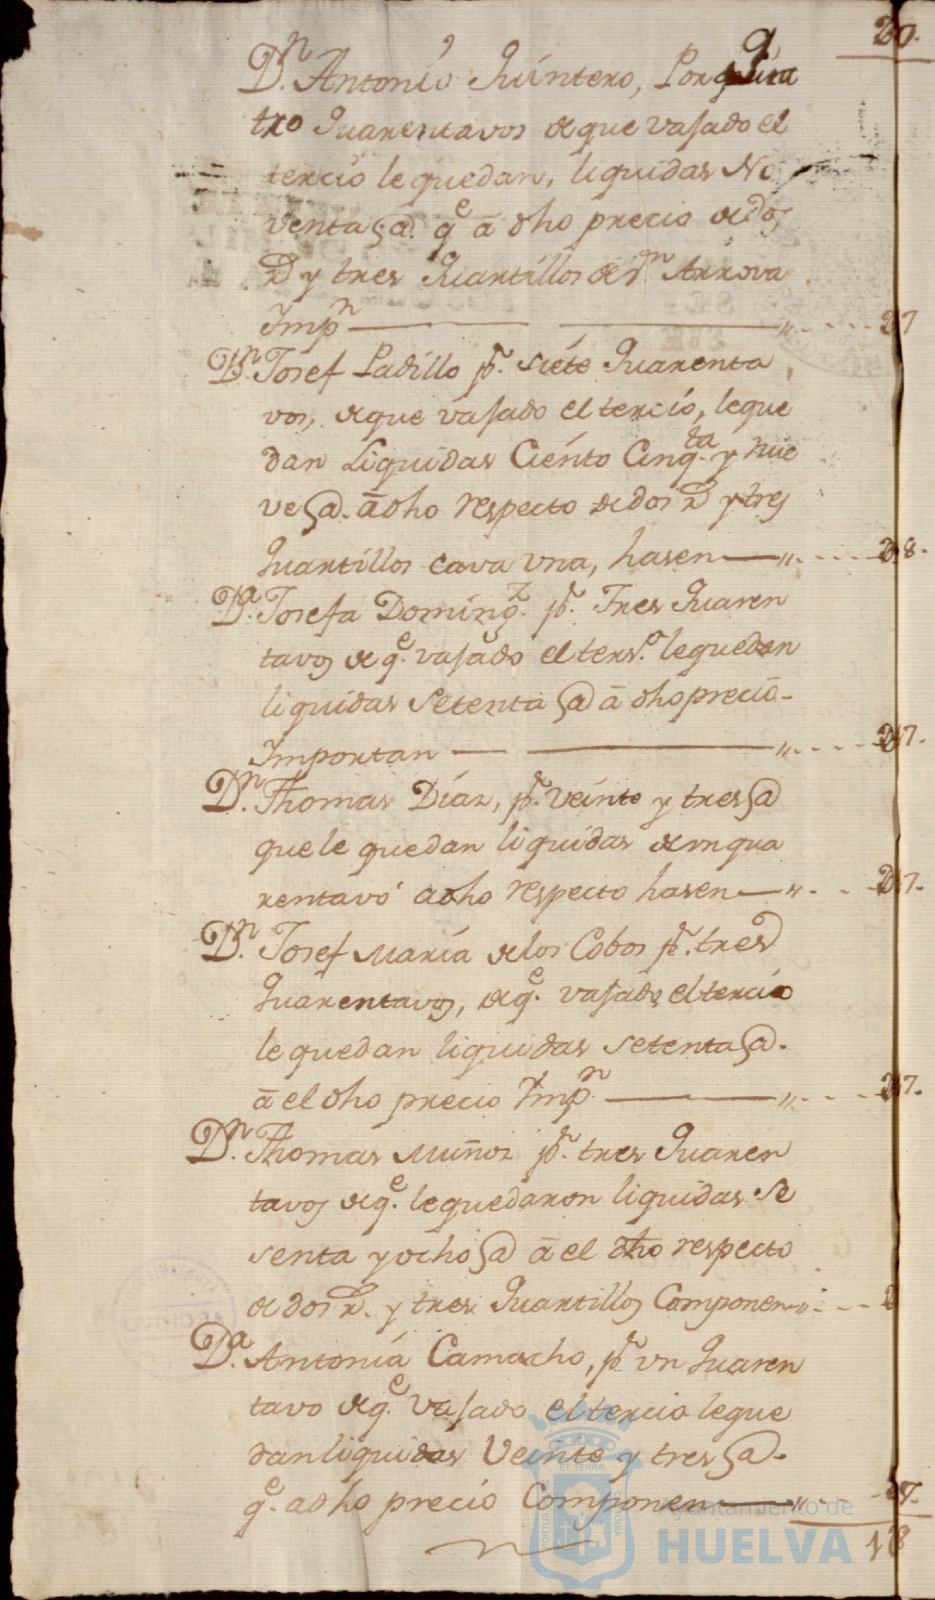 20.
Dn. Antonio Quintero, Por qua
tro Quarentavos de que vasado el
tercio le quedan, liquidas No
venta @. qe â dho precio de dos
R y tres Quartillos de Vn Arrova
Impn ———— " 27
Dn. Josef Padillo pr. siete Quarenta
vos, de que vasado el tercio, leque
dan Liquidas Ciento Cinqta. y nue
ve @. â dho respecto de dos R y tres
Quartillos cava Vna, hasen — " 28.
Da. Josefa Doming.z pr. Tres Quaren
tavos de qe. vasado el terso. lequedan
liquidas Setenta @ â dho precio-
Importan ———— " 27.
Dn. Thomas Díaz, pr. veinte y tres @
que le quedan liquidas de un qua
rentavo adho respecto hasen — " 27.
Dn. Josef María delos Cobos pr. tres
Quarentavos, de qe. vasado eltercio
le quedan liquidas setenta @.
â el dho precio Impn ———— " 27.
Dn. Thomas Muñoz pr. tres Quaren
tavos de qe. lequedaron liquidas se
senta y ocho @ â el dho respecto
de dos R. y tres Quartillos Componen " 2
Da. Antonía Camacho, pr vn Quaren
tavo de qe. vasado eltercio leque
dan liquidas Veinte y tres @.
qe. adho precio Componen — " 27.
18
Ayuntamiento de
HUELVA